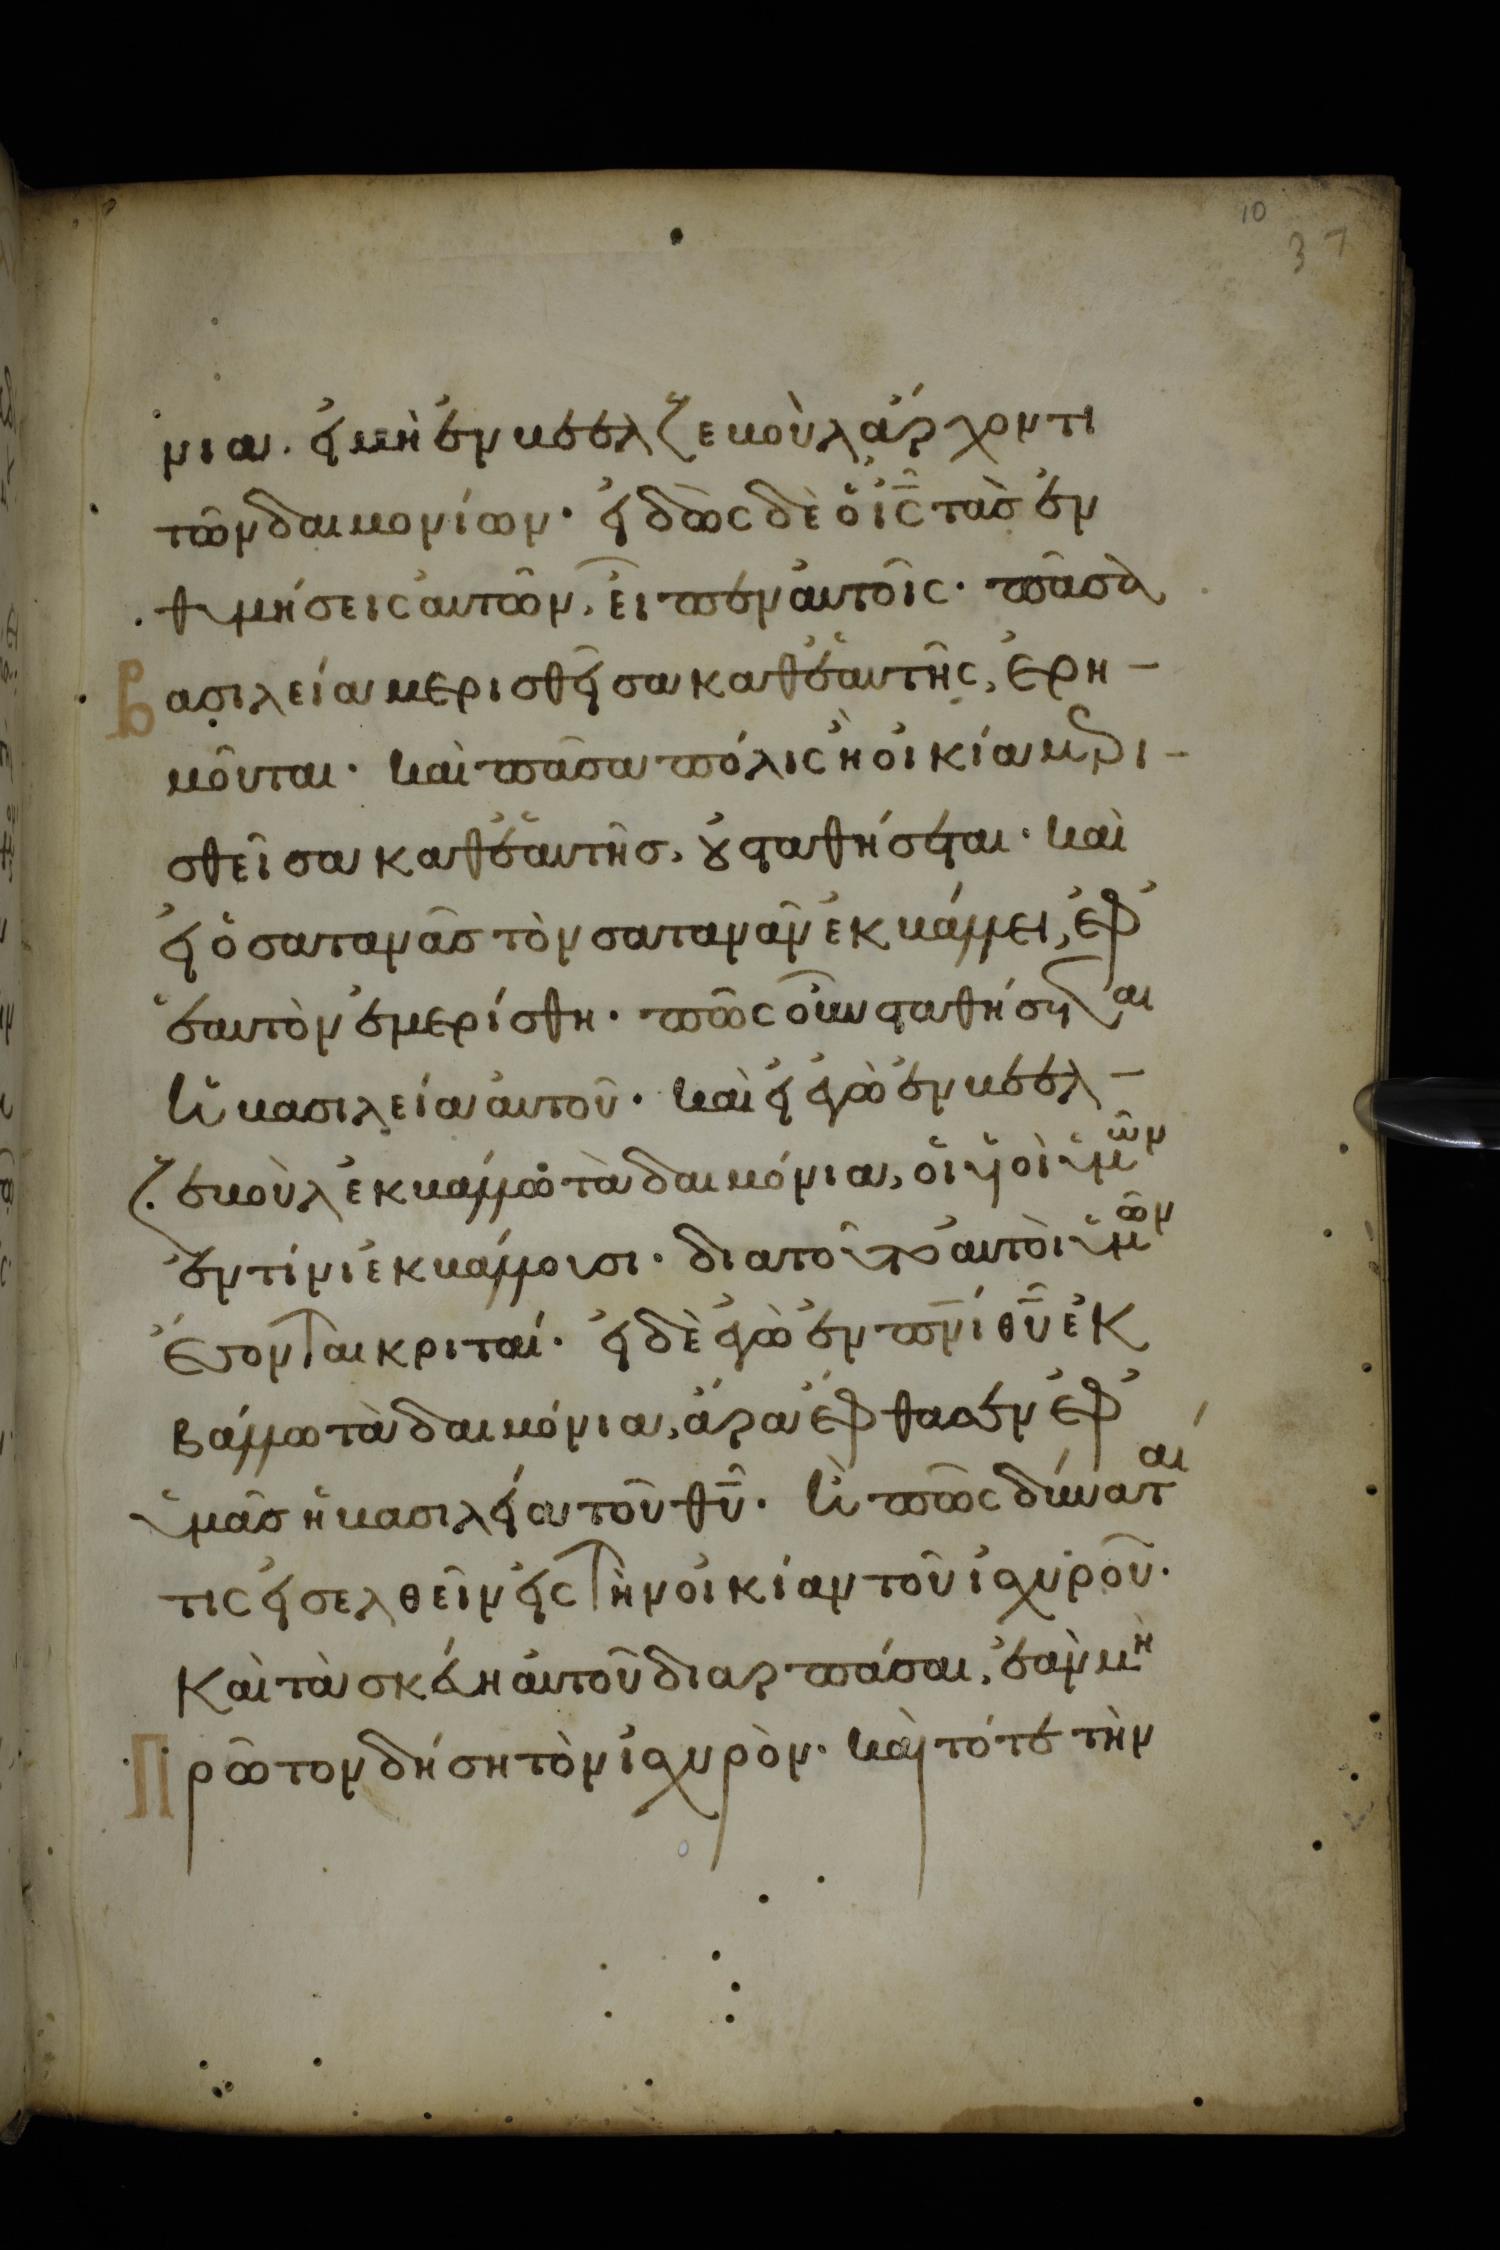 10
37
μια. εἰ μὴ ἐν βεελζεβοὺλ ἄρχοντι
τῶν δαιμονίων· εἰδὼς δὲ ὁ ἰς̅ τὰς ἐν
θυμήσεις αὐτῶν, εἶπεν αὐτοῖς· πᾶσα
βασιλεία μερισθεῖσα καθ' ἑαυτῆς, ἐρη-
μοῦται· καὶ πᾶσα πόλις ἢ οἰκία μερι-
σθεῖσα καθ' ἑαυτῆς, οὐ σταθήσεται· καὶ
εἰ ὁ σατανᾶς τὸν σατανᾶν ἐκβάλλει, ἐφ'
ἑαυτὸν ἐμερίσθη· πῶς οὖν σταθήσεται
ἡ βασιλεία αὐτοῦ· καὶ εἰ ἐγὼ ἐν βεελ-
ζεβοὺλ ἐκβάλλω τὰ δαιμόνια, οἱ υἱοὶ ὑμῶν
ἐν τίνι ἐκβάλλουσι· διατοῦτο αὐτοὶ ὑμῶν
ἔσονται κριταί· εἰ δὲ ἐγὼ ἐν πνι̅ θυ̅ ἐκ
βάλλω τὰ δαιμόνια, ἄρα ἔφθασεν ἐφ'
ὑμᾶς ἡ βασιλεία τοῦ θυ̅· ἢ πῶς δύναται
τις εἰσελθεῖν εἰς τὴν οἰκίαν τοῦ ἰσχυροῦ·
καὶ τὰ σκεύη αὐτοῦ διαρπάσαι, ἐὰν μὴ
πρῶτον δήσῃ τὸν ἰσχυρὸν· καὶ τότε τὴν